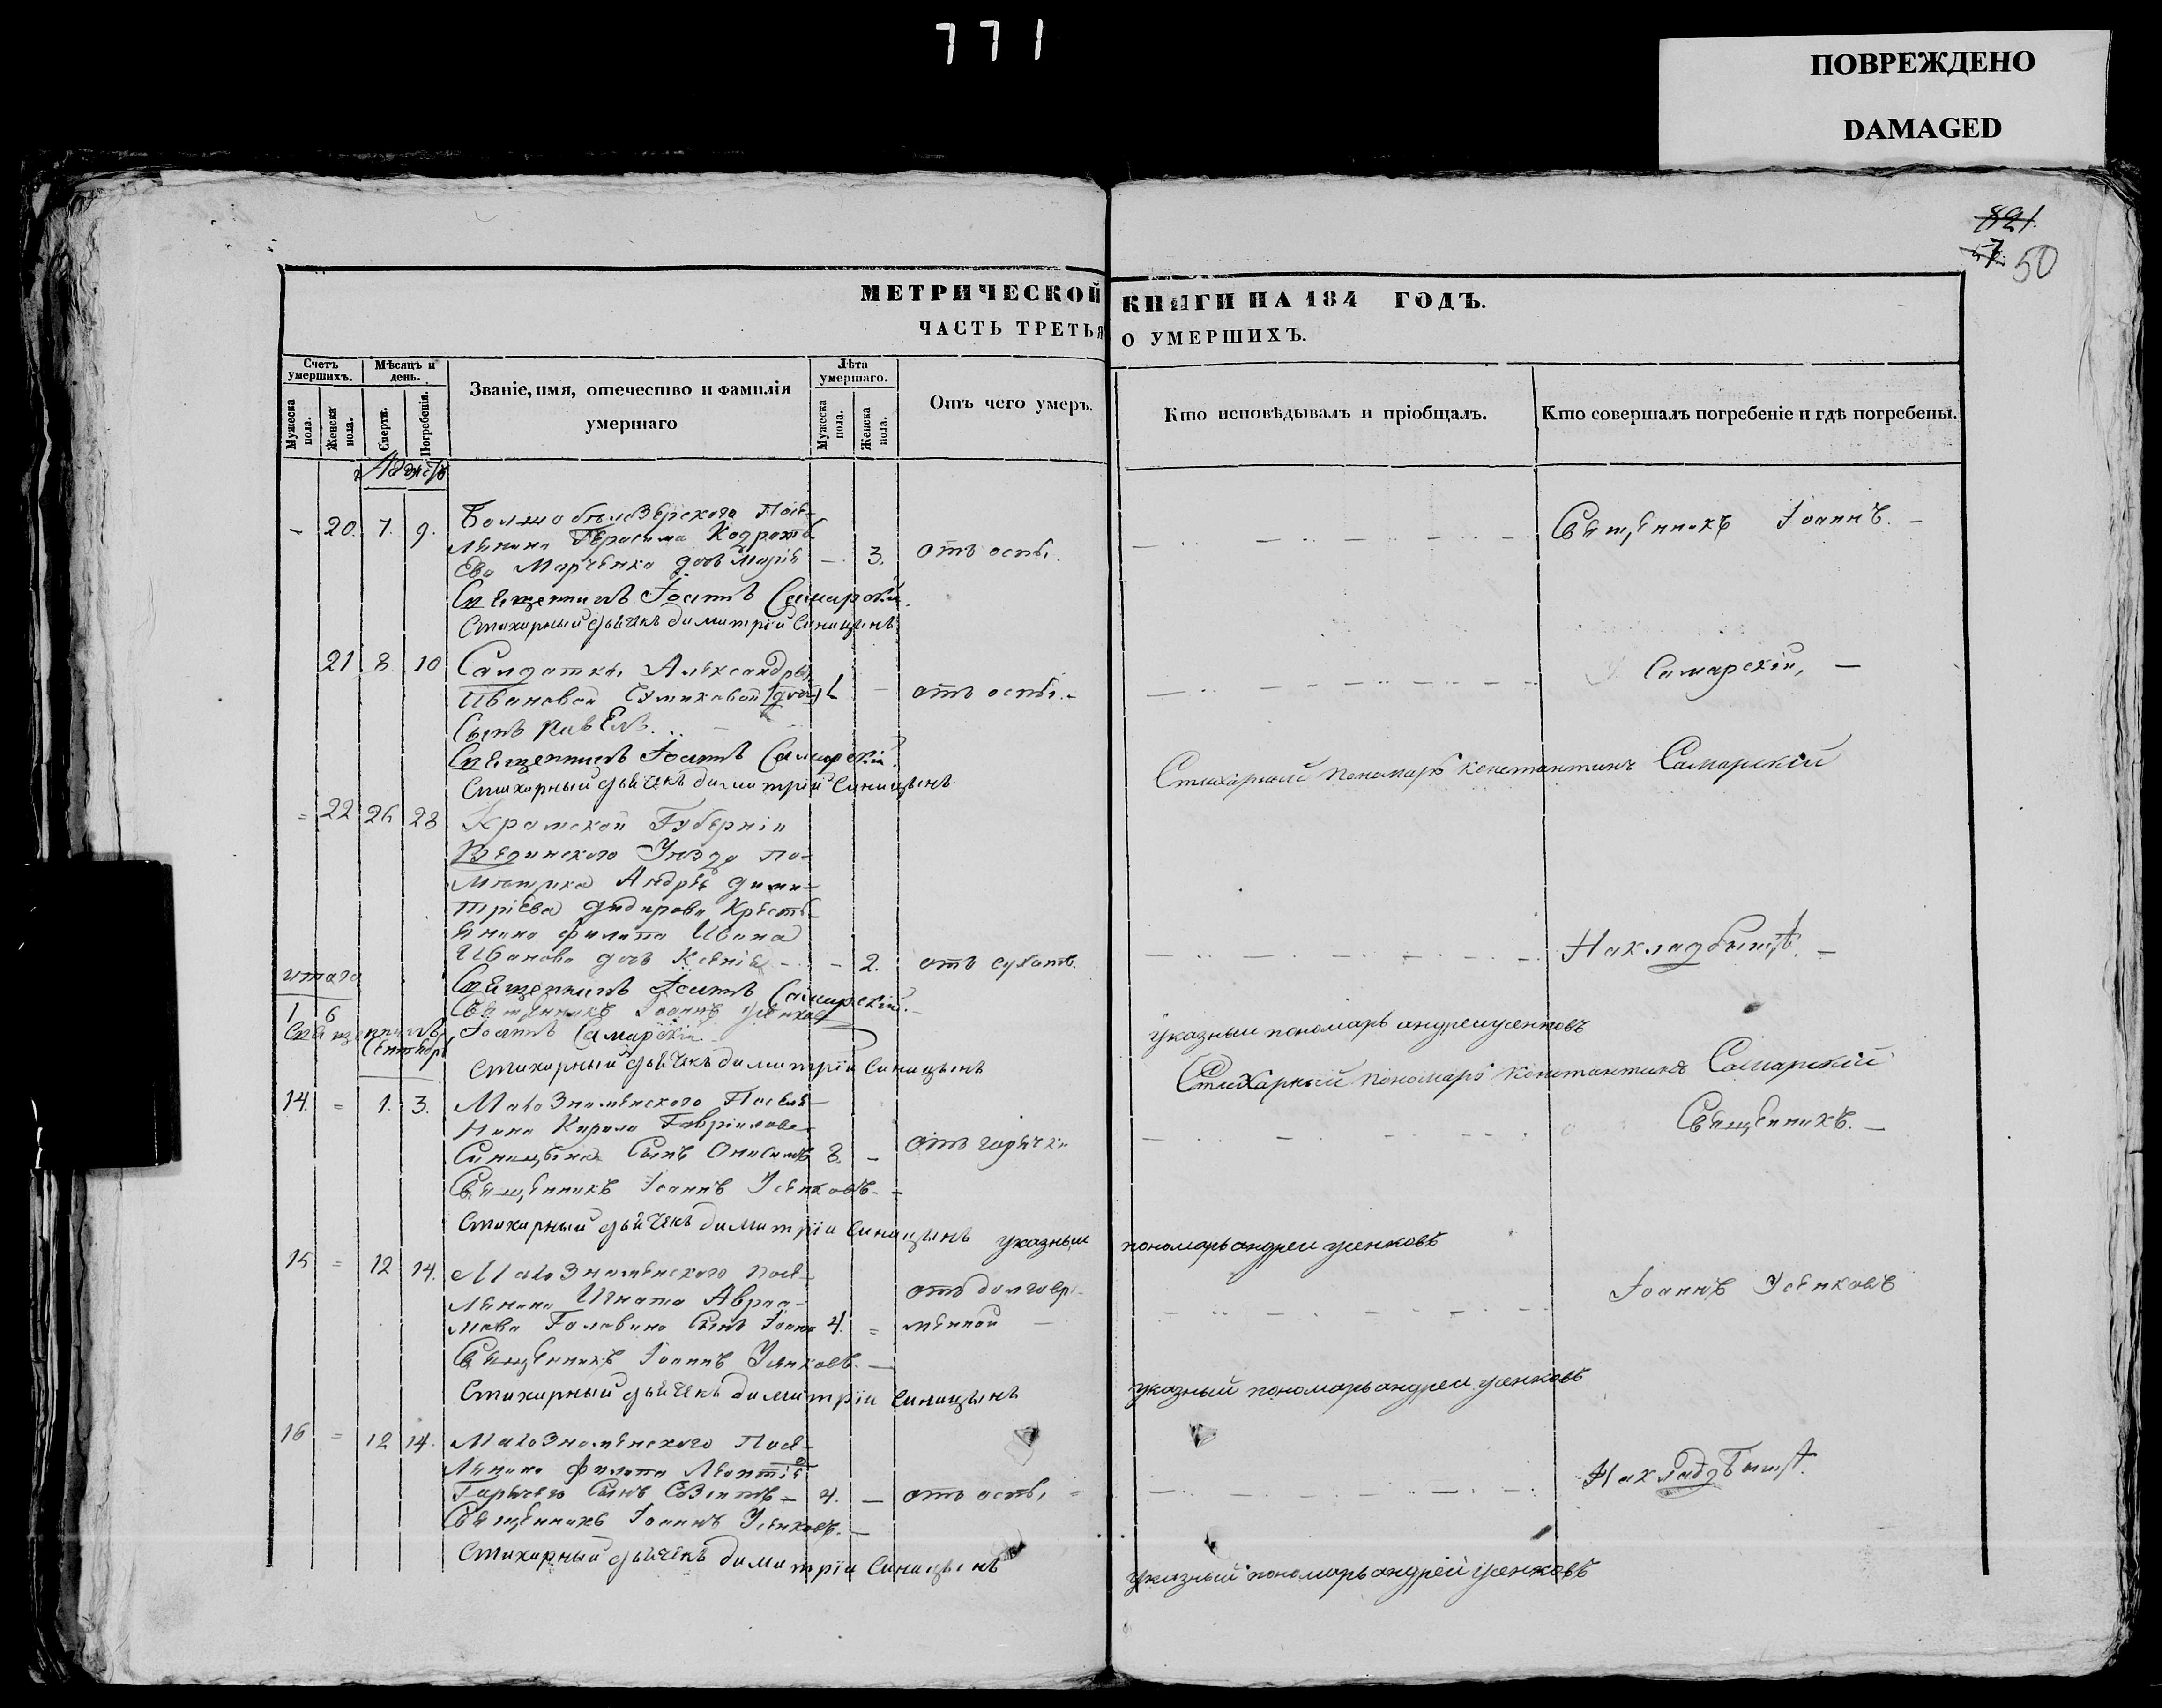 771
ПОВРЕЖДЕНО
DAMAGED
821.
50
МЕТРИЧЕСКОЙ КНИГИ НА 184 ГОДЪ.
ЧАСТЬ ТРЕТЬЯ О УМЕРШИХЪ.
Счетъ умершихъ.
Мужеска пола.
Женска пола.
Мѣсяцъ и день.
Смерти.
Погребенія.
Званіе, имя, отечество и фамилія
умершаго
Лѣта умершаго.
Мужеска пола.
Женска пола.
Отъ чего умеръ.
Кто исповѣдывалъ и пріобщалъ.
Кто совершалъ погребеніе и гдѣ погребены.
Августъ
- 20. 7. 9. Болшобѣлозерскаго Посе-
ленина Герасима Кодрать
Ева Марченка дочь Марія - 3. отъ оспы. Священникъ Іоаннъ. -
Священникъ Іоаннъ Самарскій.
Стихарный дьячекъ димитрій Синицынъ
21 8 10 Салдатки Александры
Ивановой 1 - отъ оспы. - Самарскій, -
Сынъ павЕлъ.
Священникъ Іоаннъ Самарскій.
Стихарный дьячекъ димитрій Синицынъ Стихарный пономарь константинъ Самарскій
= 22 26 28 Губерніи
Уѣзда по-
мѣщика Андрея дими-
тріЕва Кресть-
янина филипа Ивана
Иванова дочь Ксенія - - 2. отъ сухоты. На кладбыщѣ. -
итаго
1 6
Священникъ Іоаннъ Самарскій.
Священникъ Іоаннъ Усенковъ указный пономарь андрей усенковъ
Священникъ Іоаннъ Самарскій
Сентябрь
Стихарный дьячекъ димитрій Синицынъ Стихарный пономарь константинъ Самарскій
14. = 1. 3. Малознаменского Поселе-
нина Кирила Гавріилова
Синицына Сынъ Онисимъ 8. - отъ горячки Священникъ. -
Священникъ Іоаннъ Усенковъ. -
Стихарный дьячекъ димитрій Синицынъ указный пономарь андрей усенковъ
15 = 12 14. Малознаменского посе-
ленина Игната Авраа-
мова Головина Сынъ Іоанъ 4. = отъ долговре-
менной Іоаннъ Усенковъ
Священникъ Іоаннъ Усенковъ. -
Стихарный дьячекъ димитрій Синицынъ указный пономарь андрей усенковъ
16 = 12 14. Малознаменского Посе-
ленина филипа Леонтіе
Сынъ - 4. - отъ оспы На кладбыщѣ.
Священникъ Іоаннъ Усенковъ. -
Стихарный дьячекъ димитрій Синицынъ указный пономарь андрей усенковъ